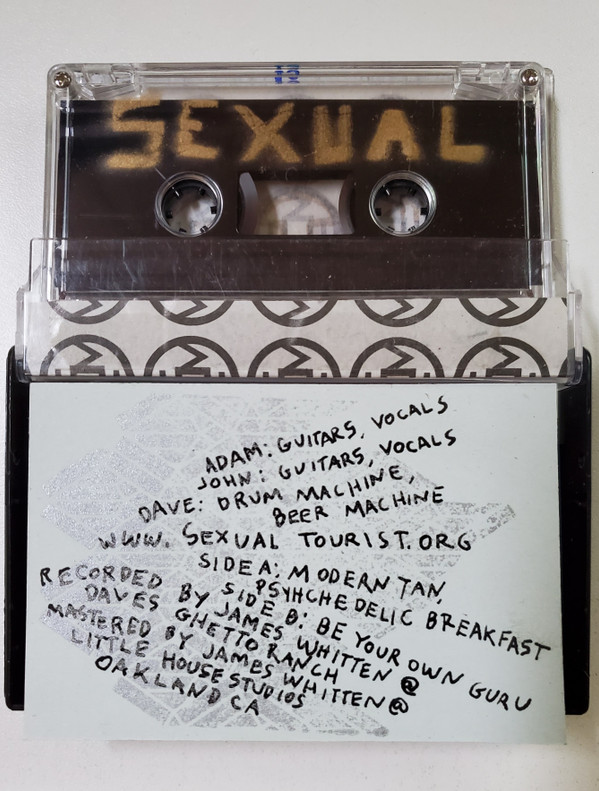 SEXUAL
ADAM: GUITARS, VOCALS
JOHN: GUITARS, VOCALS
DAVE: DRUM MACHINE,
BEER MACHINE
WWW. SEXUAL TOURIST.ORG
SIDE A: MODERN TAN,
PSYHCHEDELIC BREAKFAST
SIDE B: BE YOUR OWN GURU
RECORDED BY JAMES WHITTEN @
DAVES GHETTO RANCH
MASTERED BY JAMES WHITTEN @
LITTLE HOUSE STUDIOS
OAKLAND CA